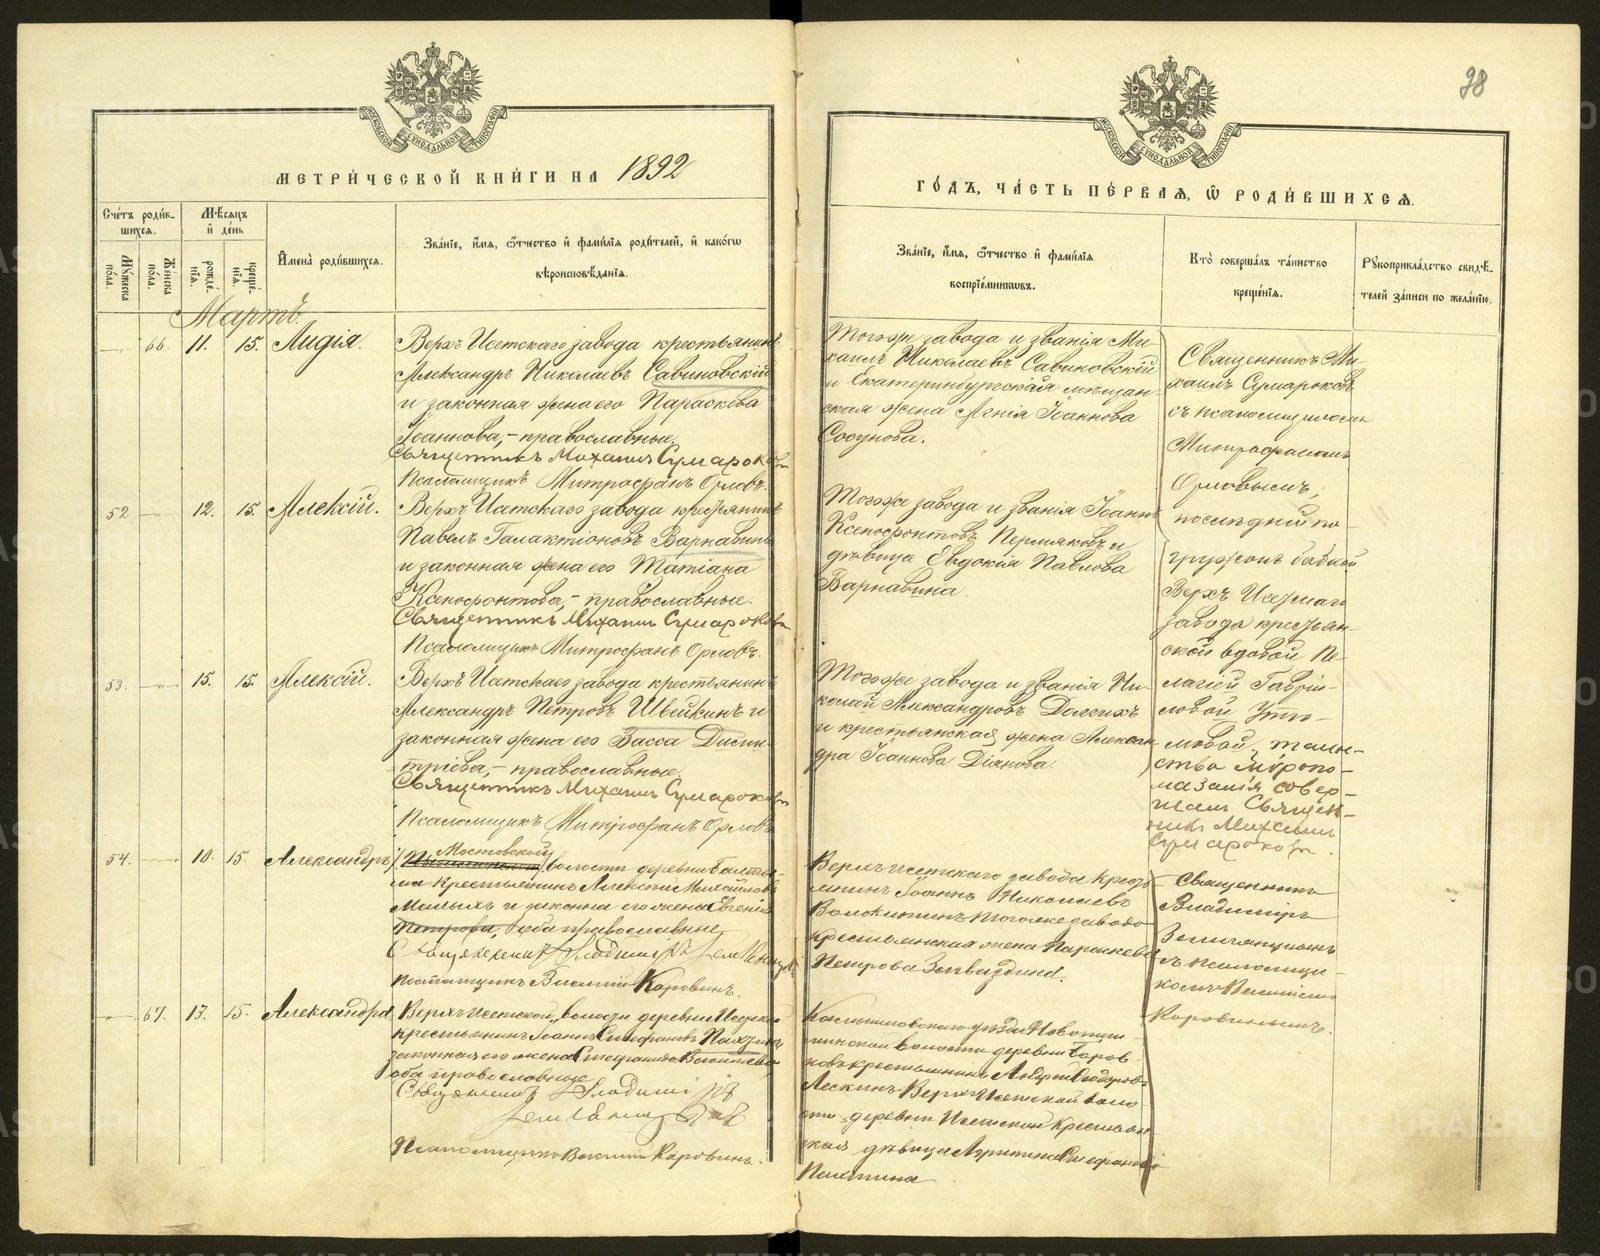 98
МЕТРИ́ЧЕСКОЙ КНИ́ГИ НА 1892
ГО́ДЪ, ЧА́СТЬ ПЕ́РВАЯ, Ѡ РОДИ́ВШИХСЯ.
Счетъ роди́вшихся.
Мѣсяцъ и день
Мужеска пола.
Женска пола.
рождéнiя.
крещéнiя.
Имена роди́вшихся.
Зва́нiе, и́мя, ѻ́тчество и фами́лiя роди́телей, и како́гѡ
вѣроисповѣ́данiя.
Зва́нiе, и́мя, ѻ́тчество и фами́лiя
воспрiе́мниковъ.
Кто соверша́лъ та́инство
креще́нiя.
Рукоприкла́дство свидѣ́-
телей за́писи по жела́нiю.
Мартъ
66. 11. 15. Лидія.
Верхъ Исетскаго завода крестьянинъ
Александръ Николаевъ Савиновскій
и законная жена его Параскева
Іоаннова, - православные.
Священникъ Михаилъ Сумароковъ
Псаломщикъ Митрофанъ Орловъ.
Тогоже завода и званія Ми-
хаилъ Николаевъ Савиновскій
и Екатеринбургская мѣщан-
ская жена Агнія Іоаннова
Сосунова.
Священникъ Ми-
хаилъ Сумароковъ
съ псаломщикомъ
Митрофаномъ
Орловымъ;
52 12. 15. Алексій.
Верхъ Исетскаго завода крестьянинъ
Павелъ Галактіоновъ Варнавинъ
и законная жена его Татіана
Ксенофонтова, - православные.
Священникъ Михаилъ Сумароковъ
Псаломщикъ Митрофанъ Орловъ.
Тогоже завода и званія Іоаннъ
Ксенофонтовъ Пермяковъ и
дѣвица Евдокія Павлова
Варнавина.
послѣдній по-
груженъ бабкой
Верхъ Исетскаго
завода крестьян-
ской вдовой Пе-
лагіей Гаврiи-
ловой
53. 15. 15. Алексій.
Верхъ Исетскаго завода крестьянинъ
Александръ Петровъ Швейкинъ и
законная жена его Васса Дими-
тріева, - православные.
Священникъ Михаилъ Сумароковъ
Псаломщикъ Митрофанъ Орловъ
Тогоже завода и званія Ни-
колай Александровъ Долгихъ
и крестьянская жена Алексан-
дра Іоаннова Діянова.
таин-
ство мѵропо-
мазанія совер-
шалъ Священ-
никъ Михаилъ
Сумароковъ.
54. 10. 15. Александръ
Мостовской
волости деревни Балты-
ма крестьянинъ Алексѣй Михайловъ
Малыхъ и законна его жена Евгенія
Петрова, оба православные
Священникъ Владиміръ Земляницынъ
Псаломщикъ Василій Коровинъ.
Верхъ Исетскаго завода крест-
янинъ Іоаннъ Николаевъ
Волокитинъ тогоже завода
крестьянская жена Параскева
Петрова Загвоздина.
Священникъ
Владиміръ
Земляницынъ
съ псаломщи-
комъ Василіемъ
Коровинымъ.
67. 13. 15. Александра
Верхъ Исетской, волости деревни Исетской
крестьянинъ Іоаннъ Стефановъ Пахтинъ
законная его жена Стефанида Васильева
оба православные
Священникъ Владиміръ
Земляницынъ
Псаломщикъ Василій Коровинъ.
Камышловскаго уѣзда Новопыш-
минской волости деревни Боров-
ковъ крестьянинъ Андрей Ѳедоровъ
Лескинъ Верхъ Исетской воло
сти деревни Исетской крестьян-
ская дѣвица Агриппина Стефанова
Пахтина